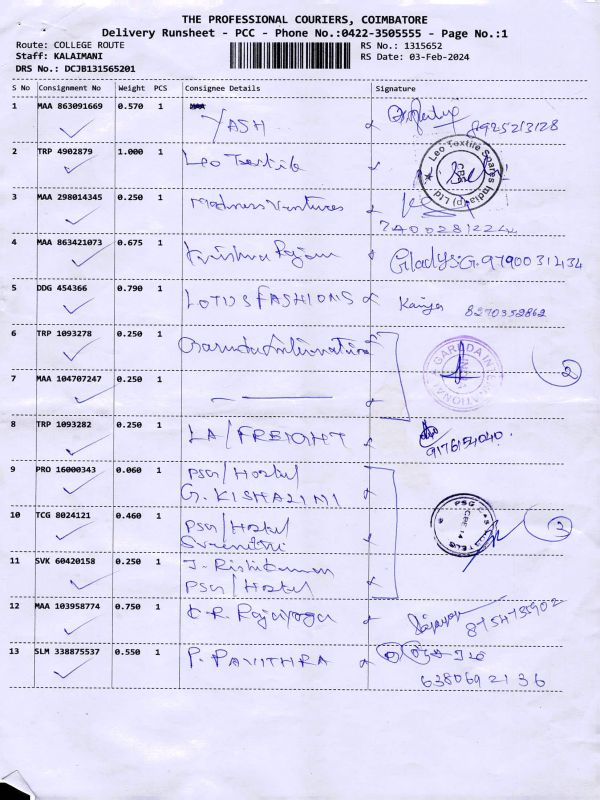 THE PROFESSIONAL COURIERS, COIMBATORE
Delivery Runsheet - PCC - Phone No.:0422-3505555 - Page No.:1
Route: COLLEGE ROUTE
Staff: KALAIMANI
DRS No.: DCJB131565201
RS No.: 1315652
RS Date: 03-Feb-2024
S No Consignment No Weight PCS Consignee Details Signature
1 MAA 863091669 0.570 1 YASH 8925213128
2 TRP 4902879 1.000 1 Leo Textile Leo Textile Spares India (P) Ltd
3 MAA 298014345 0.250 1 Madness Ventures
4 MAA 863421073 0.675 1 Krishna Rajam Gladys.G. 9790031434
5 DDG 454366 0.790 1 LOTUS FASHIONS 8270352862
6 TRP 1093278 0.250 1 Garuda International GARUDA INTERNATIONAL 2
7 MAA 104707247 0.250 1
8 TRP 1093282 0.250 1 LA/FREIGHT 9176154040.
9 PRO 16000343 0.060 1 PSG/Hostel
G. KISHALINI
10 TCG 8024121 0.460 1 PSG/Hostel
Srinithi
11 SVK 60420158 0.250 1 J. Rishikumar
PSG/Hostel
12 MAA 103958774 0.750 1
13 SLM 338875537 0.550 1 P. PAVITHRA
6380692136